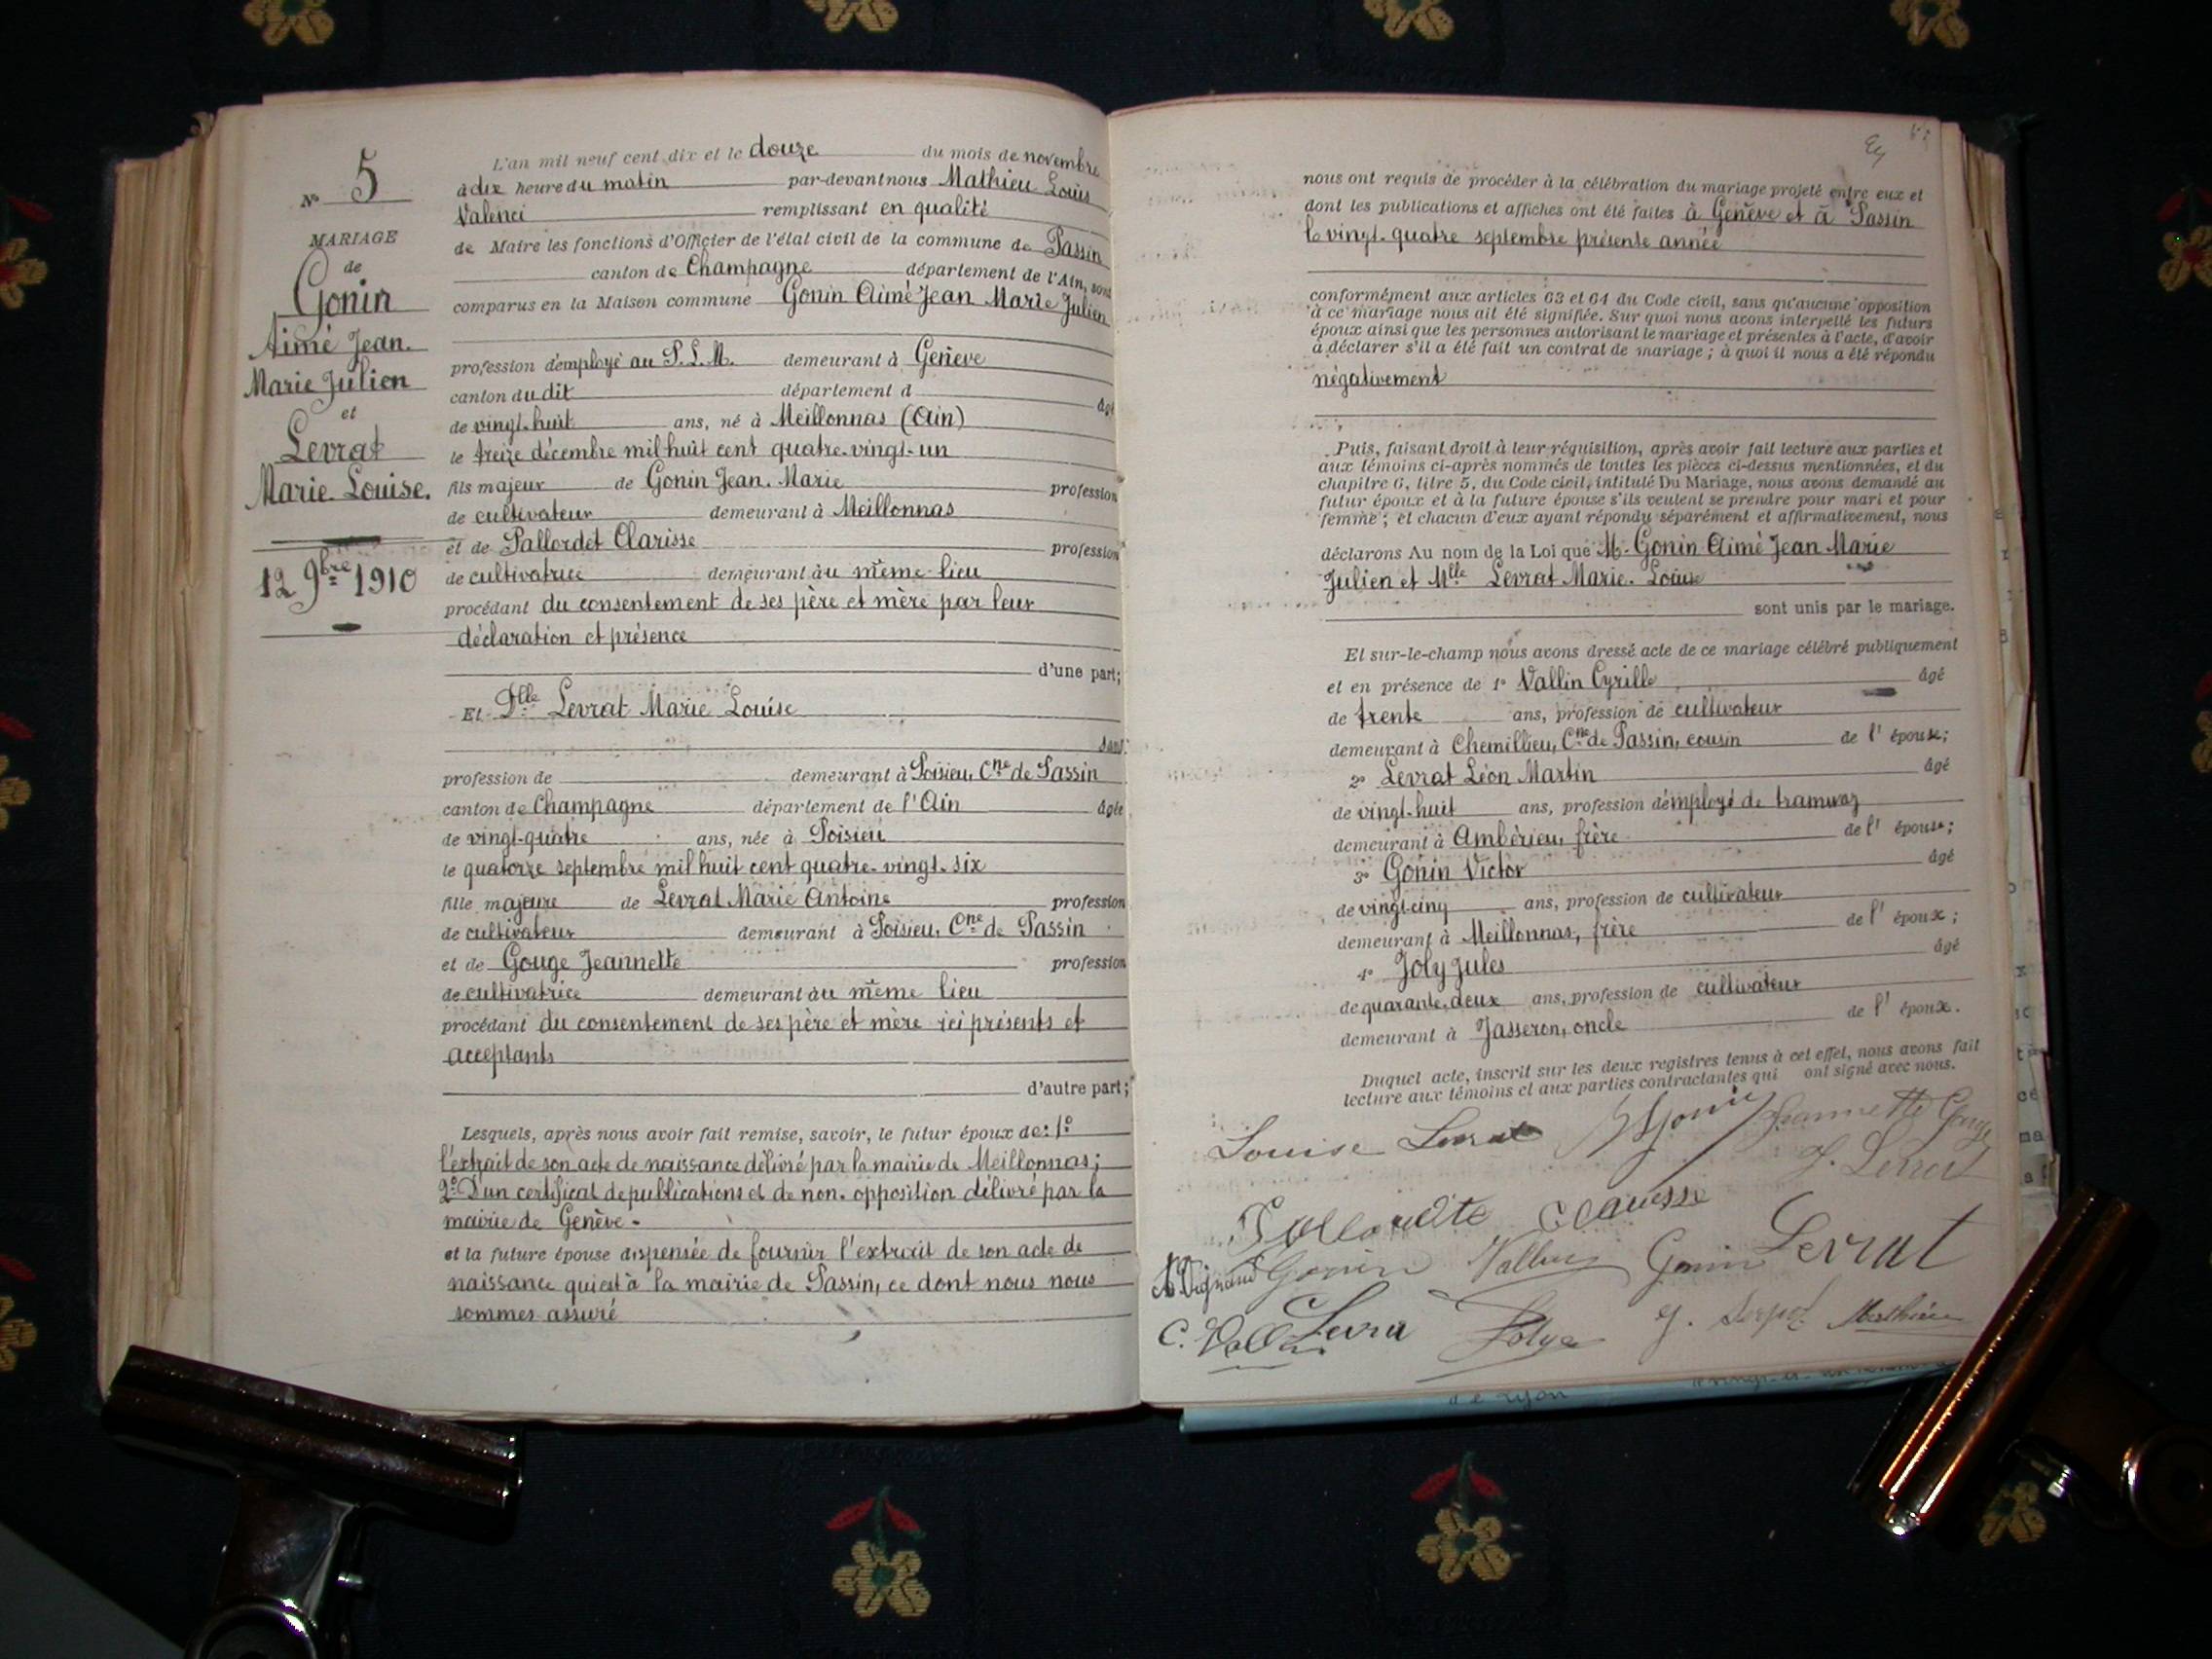 N° 5
MARIAGE
de
Gonin
Aimé Jean.
Marie Julien
et
Levrat
Marie Louise.
12 9bre 1910
L'an mil neuf cent dix et le douze du mois de novembre
à dix heure du matin par-devant nous Mathieu Louis
Valenci remplissant en qualité
de Maire les fonctions d'Officier de l'état civil de la commune de Passin
canton de Champagne département de l'Ain, sont
comparus en la Maison commune Gonin Aimé Jean Marie Julien
profession d'employé au P.L.M. demeurant à Genève
canton du dit département d âgé
de vingt-huit ans, né à Meillonnas (Ain)
le treize décembre mil huit cent quatre-vingt-un
fils majeur de Gonin Jean. Marie profession
de cultivateur demeurant à Meillonnas
et de Pallordet Clarisse profession
de cultivatrice demeurant au même lieu
procédant du consentement de ses père et mère par leur
déclaration et présence
d'une part;
Et Dlle Levrat Marie Louise
sans
profession de demeurant à Poisieu, Cne de Passin
canton de Champagne département de l'Ain âgée
de vingt-quatre ans, née à Poisieu
le quatorze septembre mil huit cent quatre-vingt-six
fille majeure de Levrat Marie Antoine profession
de cultivateur demeurant à Poisieu, Cne de Passin
et de Gouge Jeannette profession
de cultivatrice demeurant au même lieu
procédant du consentement de ses père et mère ici présents et
acceptants
d'autre part;
Lesquels, après nous avoir fait remise, savoir, le futur époux de: 1°
l'extrait de son acte de naissance délivré par la mairie de Meillonnas;
2° D'un certificat de publications et de non-opposition délivré par la
mairie de Genève-
et la future épouse dispensée de fournir l'extrait de son acte de
naissance qui est à la mairie de Passin, ce dont nous nous
sommes assuré
nous ont requis de procéder à la célébration du mariage projeté entre eux et
dont les publications et affiches ont été faites à Genève et à Passin
le vingt-quatre septembre présente année
conformément aux articles 63 et 64 du Code civil, sans qu'aucune opposition
à ce mariage nous ait été signifiée. Sur quoi nous avons interpellé les futurs
époux ainsi que les personnes autorisant le mariage et présentes à l'acte, d'avoir
à déclarer s'il a été fait un contrat de mariage; à quoi il nous a été répondu
négativement
Puis, faisant droit à leur réquisition, après avoir fait lecture aux parties et
aux témoins ci-après nommés de toutes les pièces ci-dessus mentionnées, et du
chapitre 6, titre 5, du Code civil, intitulé Du Mariage, nous avons demandé au
futur époux et à la future épouse s'ils veulent se prendre pour mari et pour
femme; et chacun d'eux ayant répondu séparément et affirmativement, nous
déclarons Au nom de la Loi que M. Gonin Aimé Jean Marie
Julien et Mlle Levrat Marie. Louise
sont unis par le mariage.
Et sur-le-champ nous avons dressé acte de ce mariage célébré publiquement
et en présence de 1° Vallin Cyrille âgé
de trente ans, profession de cultivateur
demeurant à Chemillieu, Cne de Passin, cousin de l'épouse;
2° Levrat Léon Martin âgé
de vingt-huit ans, profession d'employé de tramway
demeurant à Ambérieu, frère de l'épouse;
3° Gonin Victor âgé
de vingt-cinq ans, profession de cultivateur
demeurant à Meillonnas, frère de l'époux;
4° Joly Jules âgé
de quarante-deux ans, profession de cultivateur
demeurant à Jasseron, oncle de l'époux.
Duquel acte, inscrit sur les deux registres tenus à cet effet, nous avons fait
lecture aux témoins et aux parties contractantes qui ont signé avec nous.
Louise Levrat Gonin Jeannette Gouge
Clarisse
Gonin Vallin Gonin Levrat
Mathieu
de Lyon